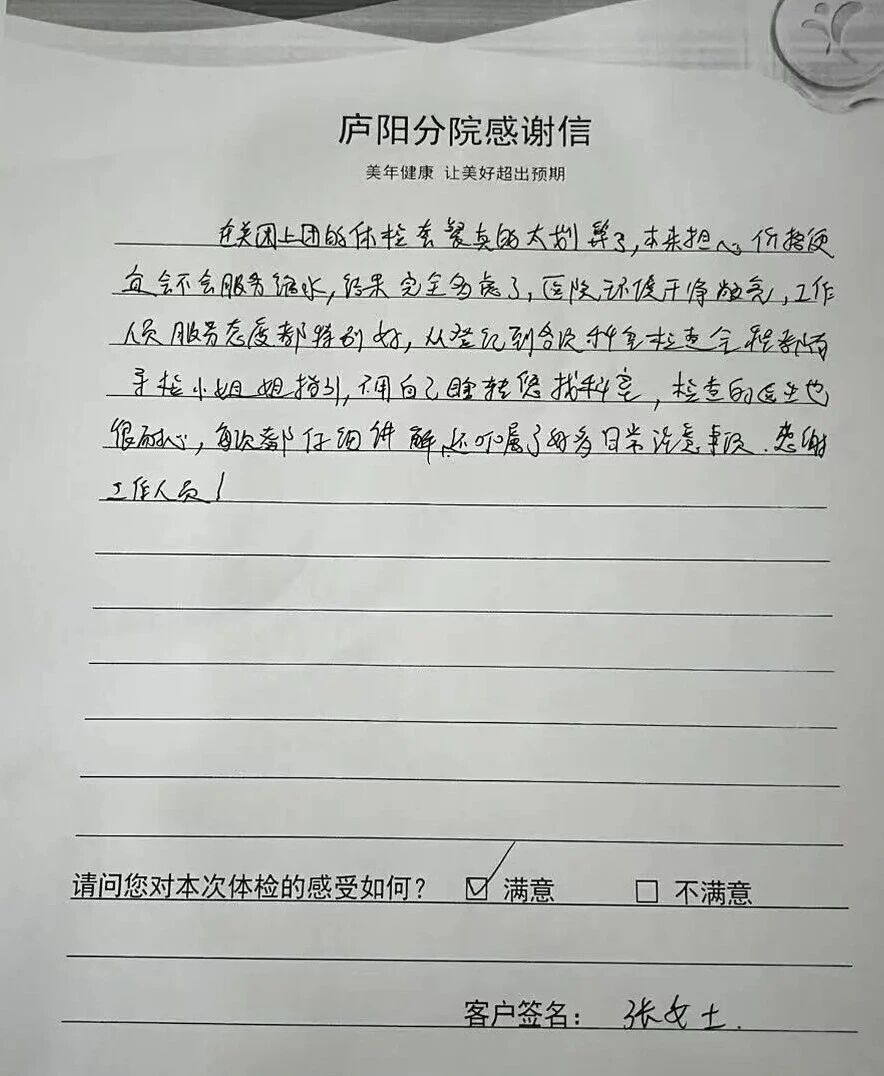 庐阳分院感谢信
美年健康 让美好超出预期
在美团上团的体检套餐真的太划算了,本来担心价格便
宜会不会服务缩水,结果完全多虑了,医院环境干净敞亮,工作
人员服务态度都特别好,从登记到各次科室检查全程都有
导检小姐姐指引,不用自己瞎转悠找科室,检查的医生也
很耐心,每次都仔细讲解,还叮嘱了好多日常注意事项.感谢
工作人员!
请问您对本次体检的感受如何? ☑ 满意 □ 不满意
客户签名: 张女士.